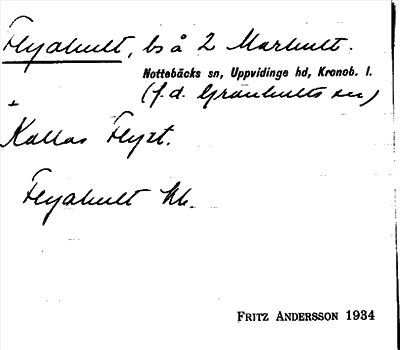 Flyahult, bs å 2 Marhult.
Nottebäcks sn, Uppvidinge hd, Kronob. l.
(f.d. Granhults sn)
+
Kallas Flyzt.
Flyahult hk.
FRITZ ANDERSSON 1934